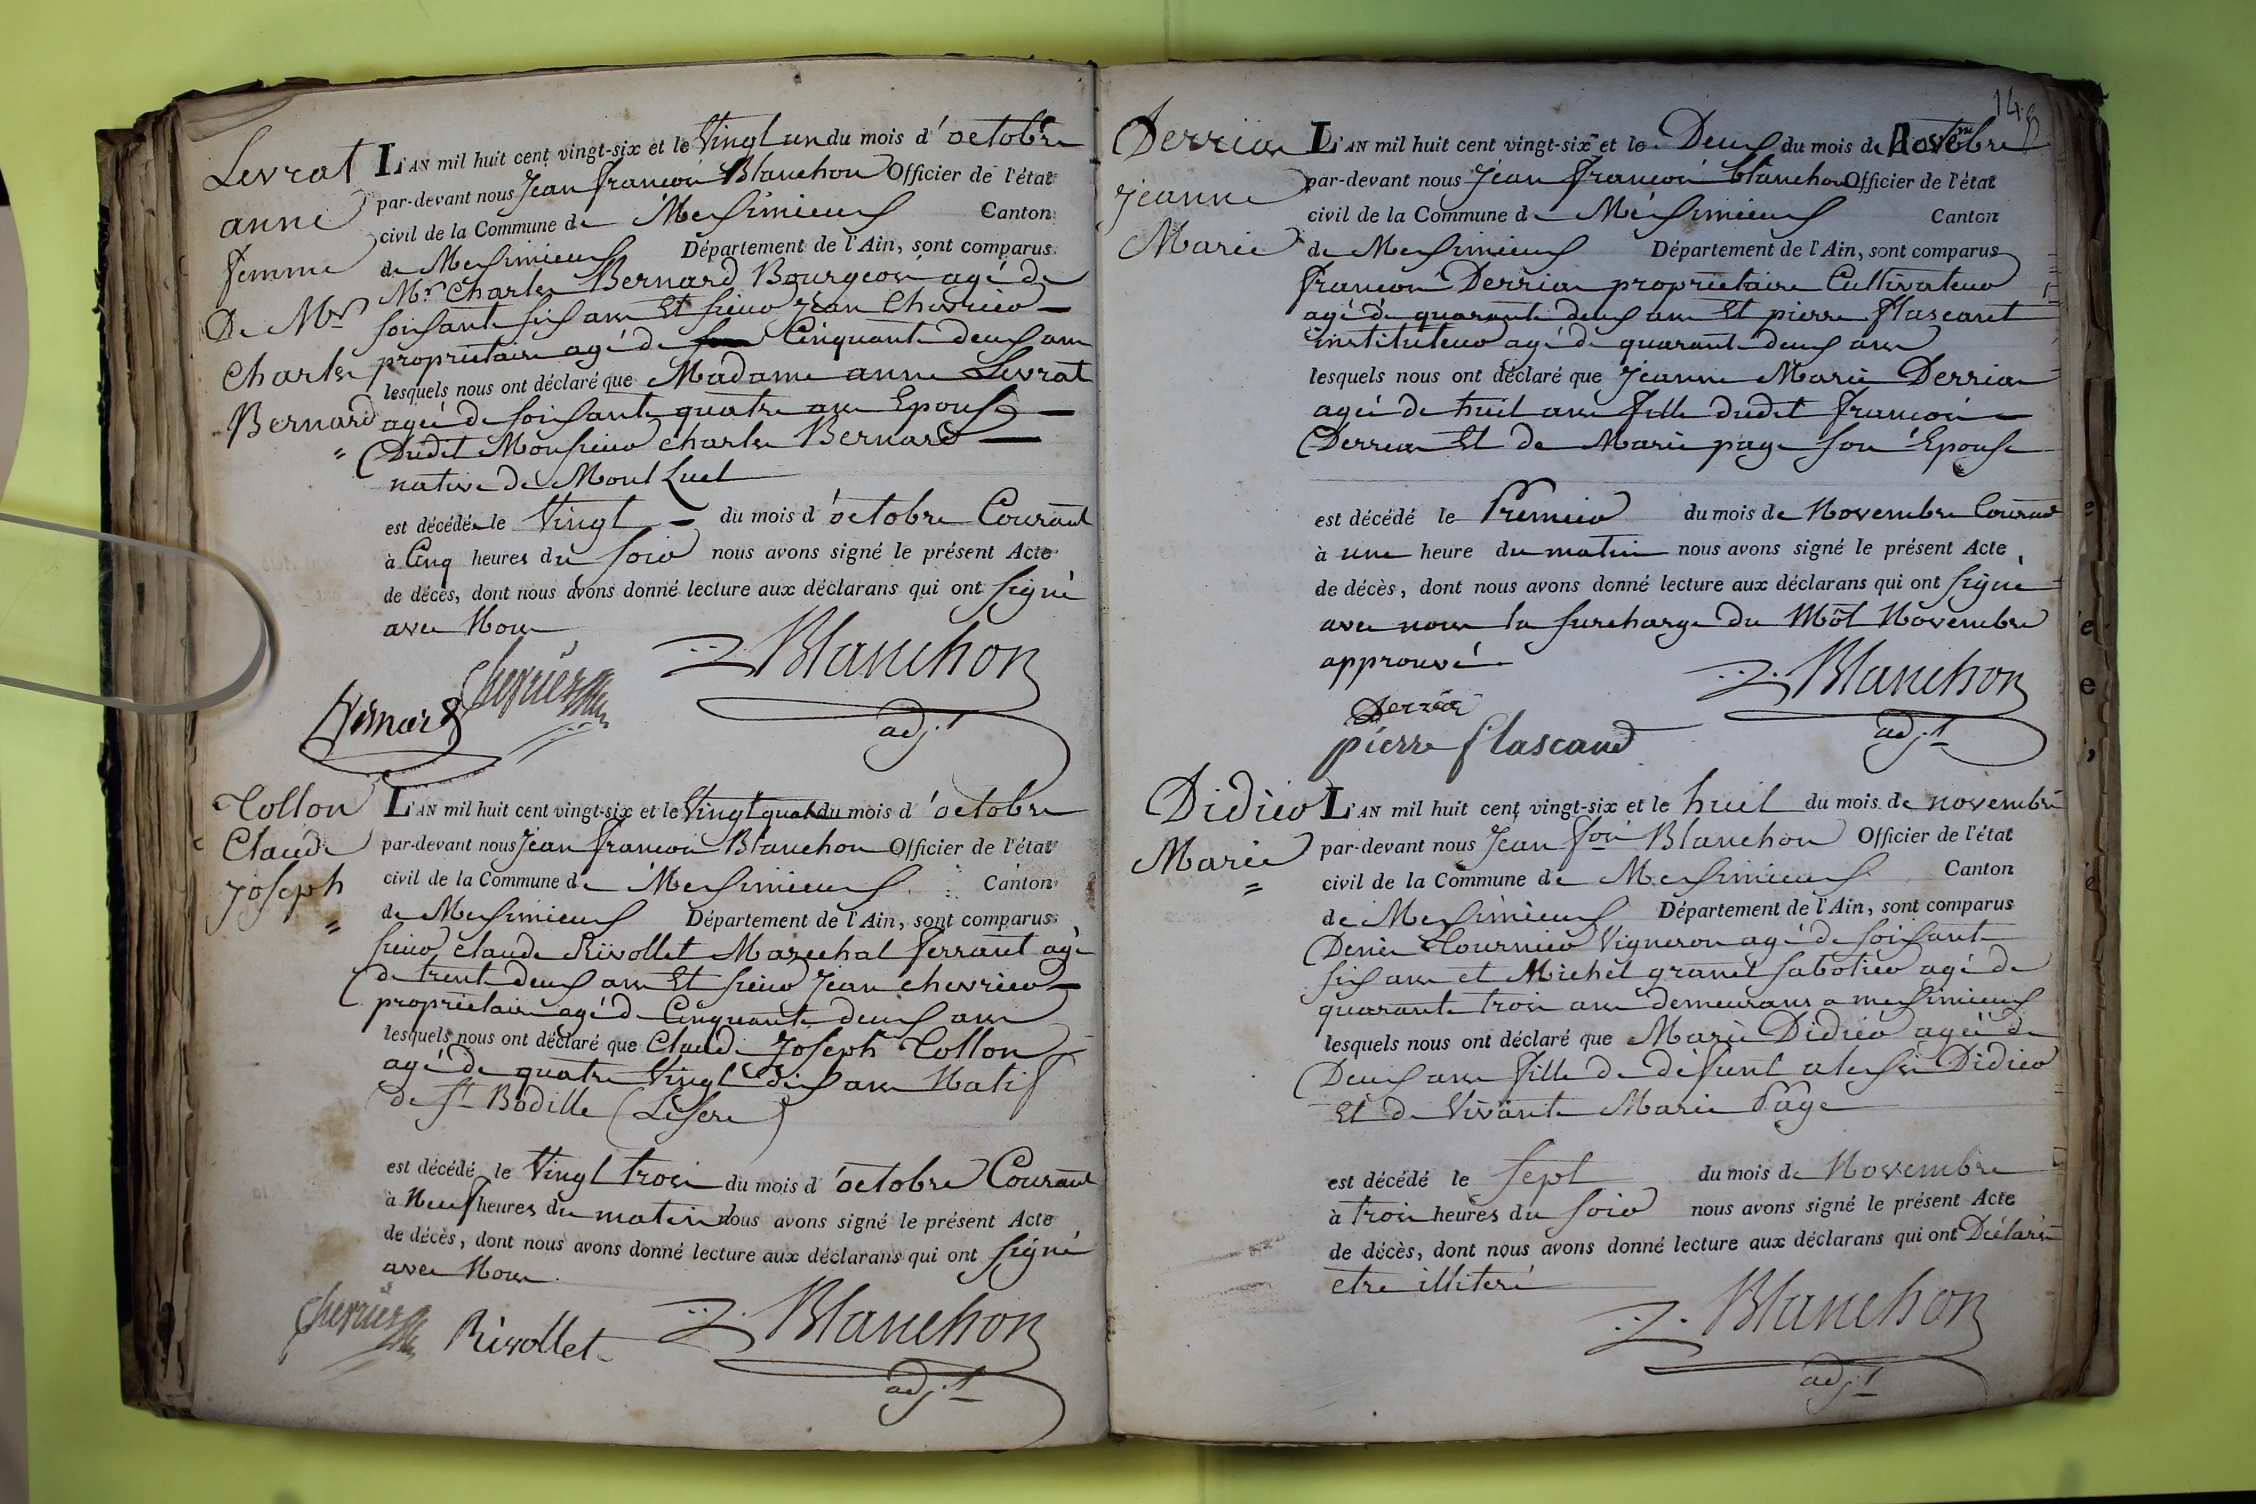 Levrat
anne
femme
De Mr
Charles
Bernard
L'AN mil huit cent vingt-six et le Vingt un du mois d'octobre
par-devant nous Jean francois Blanchon Officier de l'état
civil de la Commune de Meximieux Canton
de Meximieux Département de l'Ain, sont comparus
Mr Charles Bernard Bourgeois agé de
soixante six ans Et sieur Jean Chevrier
propriétaire agé de Cinquante deux ans
lesquels nous ont déclaré que Madame anne Levrat
agée de soixante quatre ans Epouse
Dudit Monsieur charles Bernard
native de Mont Luel
est décédée le Vingt du mois d'octobre Courant
à Cinq heures du soir nous avons signé le présent Acte
de décès, dont nous avons donné lecture aux déclarans qui ont signé
avec Nous
Bernard
Chevrier
Blanchon
adj.t
Collon
Claude
Joseph
L'AN mil huit cent vingt-six et le Vingt quatre du mois d'octobre
par-devant nous Jean francois Blanchon Officier de l'état
civil de la Commune de Meximieux Canton
de Meximieux Département de l'Ain, sont comparus
sieur Claude Rivollet Marechal ferrant agé
de trente deux ans Et sieur Jean chevrier
propriétaire agé de Cinquante deux ans
lesquels nous ont déclaré que Claude Joseph Collon
agé de quatre Vingt dix ans Natif
de St Bodille (Lisere)
est décédé le Vingt trois du mois d'octobre Courant
à Neuf heures du matin nous avons signé le présent Acte
de décès, dont nous avons donné lecture aux déclarans qui ont signé
avec Nous
Chevrier
Rivollet
Blanchon
adj.t
148
Derrias
jeanne
Marie
L'AN mil huit cent vingt-six et le Deux du mois de Novembre
par-devant nous Jean francois blanchon Officier de l'état
civil de la Commune de Meximieux Canton
de Meximieux Département de l'Ain, sont comparus
francois Derrias propriétaire Cultivateur
agé de quarante deux ans Et pierre flascaret
instituteur agé de quarante deux ans
lesquels nous ont déclaré que jeanne Marie Derrias
agée de huit ans fille dudit francois
Derrias Et de Marie page son Epouse
est décédé le Premier du mois de Novembre Courant
à une heure du matin nous avons signé le présent Acte
de décès, dont nous avons donné lecture aux déclarans qui ont signé
avec nous la surcharge du Mot Novembre
approuvé
Blanchon
adj.t
pierre flascaud
Didier
Marie
L'AN mil huit cent vingt-six et le huit du mois de novembre
par-devant nous Jean fcois Blanchon Officier de l'état
civil de la Commune de Meximieux Canton
de Meximieux Département de l'Ain, sont comparus
Denis Tournier Vigneron agé de soixante
six ans et Michel granet sabotier agé de
quarante trois ans demeurans a meximieux
lesquels nous ont déclaré que Marie Didier agée de
Deux ans fille de défunt alexis Didier
Et de Vivante Marie Page
est décédé le sept du mois de Novembre
à trois heures du soir nous avons signé le présent Acte
de décès, dont nous avons donné lecture aux déclarans qui ont Déclaré
etre illiteré
Blanchon
adj.t